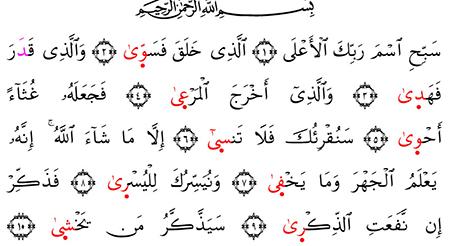 بِسْمِ اللَّهِ الرَّحْمَٰنِ الرَّحِيمِ
سَبِّحِ ٱسْمَ رَبِّكَ ٱلْأَعْلَى ﴿١﴾ ٱلَّذِى خَلَقَ فَسَوِّىٰ ﴿٢﴾ وَٱلَّذِى قَدَّرَ
فَهَدِىٰ ﴿٣﴾ وَٱلَّذِىٓ أَخْرَجَ ٱلْمَرْعِىٰ ﴿٤﴾ فَجَعَلَهُۥ غُثَآءً
أَحْوِىٰ ﴿٥﴾ سَنُقْرِئُكَ فَلَا تَنسِىٰٓ ﴿٦﴾ إِلَّا مَا شَآءَ ٱللَّهُ ۚ إِنَّهُۥ
يَعْلَمُ ٱلْجَهْرَ وَمَا يَخْفِىٰ ﴿٧﴾ وَنُيَسِّرُكَ لِلْيُسْرِىٰ ﴿٨﴾ فَذَكِّرْ
إِن نَّفَعَتِ ٱلذِّكْرِىٰ ﴿٩﴾ سَيَذَّكَّرُ مَن يَخْشِىٰ ﴿١٠﴾